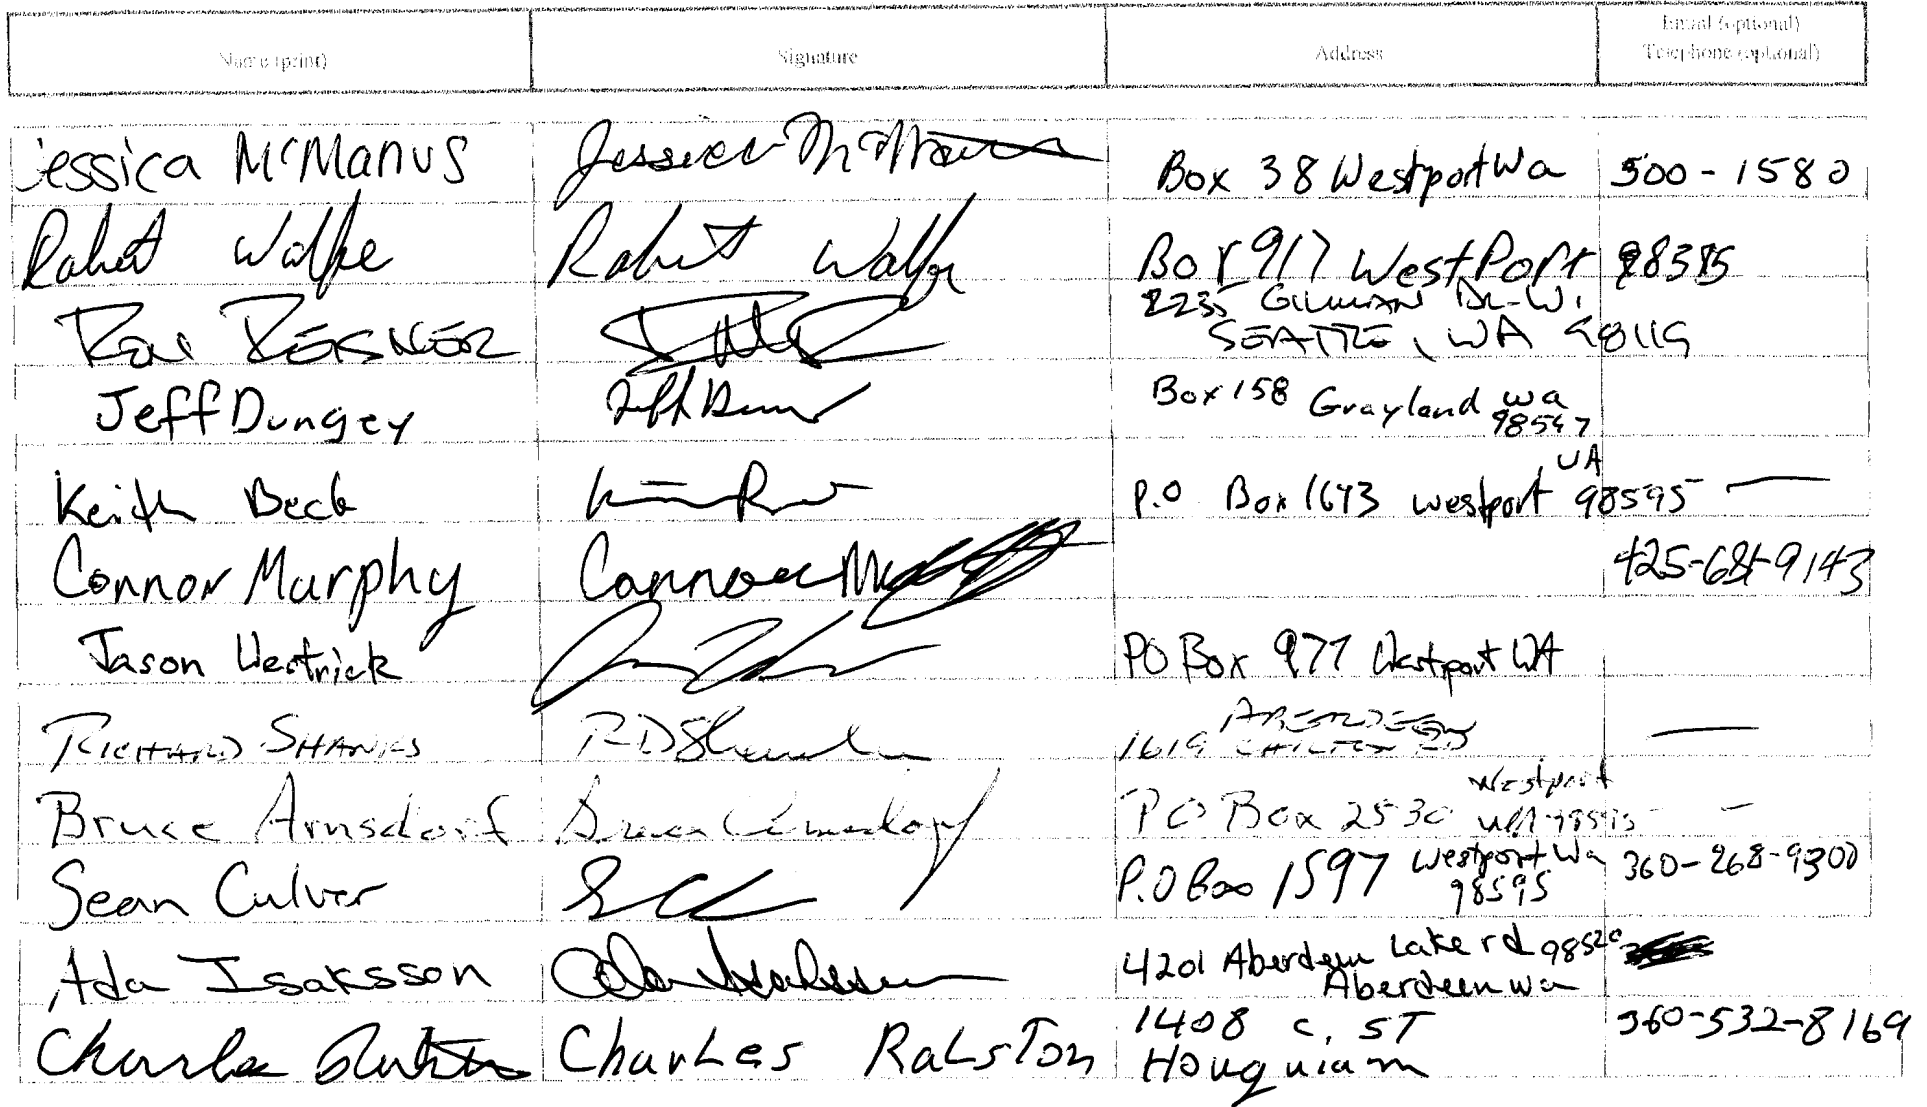 Name (print) Signature Address Email (optional)
Telephone (optional)
Jessica McManus Jessica McManus Box 38 Westport Wa 500-1580
Robert Wolfe Robert Wolfe Box 917 WestPort 98595
Ron REISNER 2235 GILMAN DR-W.
SEATTLE, WA 98119
Jeff Dungey Jeff Dungey Box 158 Grayland wa
98547
Keith Beck P.O Box 1673 Westport WA 98595 —
Connor Murphy Connor 425-681-9143
Jason Westrick PO Box 977 Westport WA
RICHARD SHANKS RD Shanks ABERDEEN
1619 RD —
Bruce Arnsdorf Bruce Arnsdorf PO Box 2530 Westport
WA 98595 - -
Sean Culver P.O Box 1597 Westport Wa 360-268-9300
98595
Ada Isaksson Ada Isaksson 4201 Aberdeen Lake rd 98520
Aberdeen wa
Charles Ralston CharLes RaLsTon 1408 C. ST 360-532-8169
Houquiam